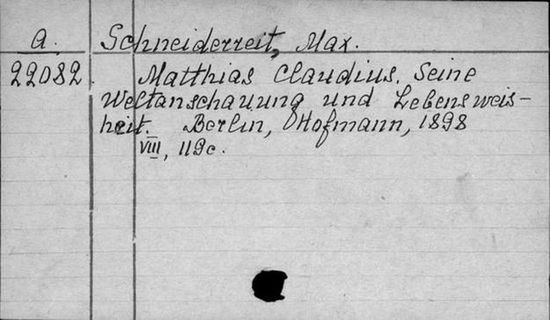 A. Schneiderreit, Max.
22082. Matthias Claudius. Seine
Weltanschauung und Lebensweis-
heit. Berlin, OHofmann, 1898
VIII, 119c.